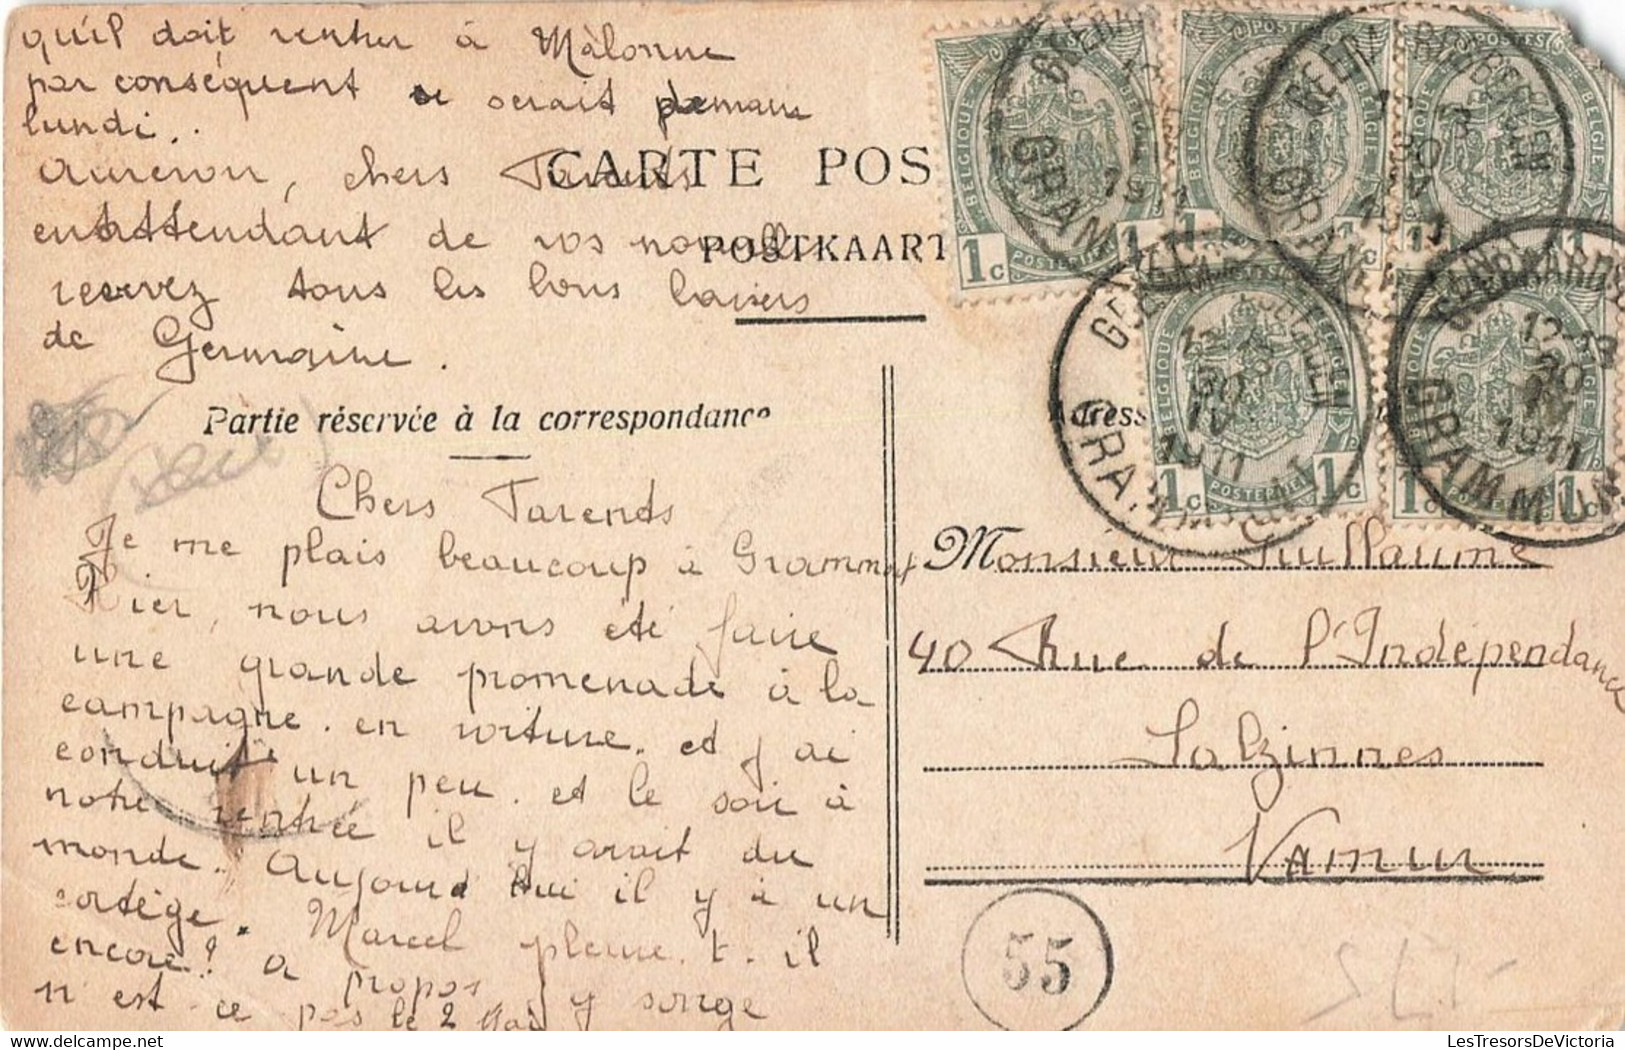 qu'il doit rentrer à Malonne
par conséquent ce serait demain
lundi..
Aurevoir, chers Parents
en attendant de vos nouvelles
recevez tous les bons baisers
de Germaine.
CARTE POS
POSTKAART
Partie réservée à la correspondance
Chers Parents
Je me plais beaucoup à Grammont
Hier, nous avons été faire
une grande promenade à la
campagne. en voiture. et j'ai
conduit un peu. et le soir à
notre rentrée il y avait du
monde. Aujourd'hui il y à un
cortège. Marcel pleure. t. il
encore? a propos y songe
n'est-ce pas le 2 Mai
Adress
Monsieur Guillaume
40 Rue de l'Indépendance
Salzinnes
Namur
55
BELGIQUE POSTES BELGIE
1c POSTERIJEN 1c
GEERAARDSBERGEN
12-13
30
IV
1911
GRAMMONT
www.LesTresorsDeVictoria.com